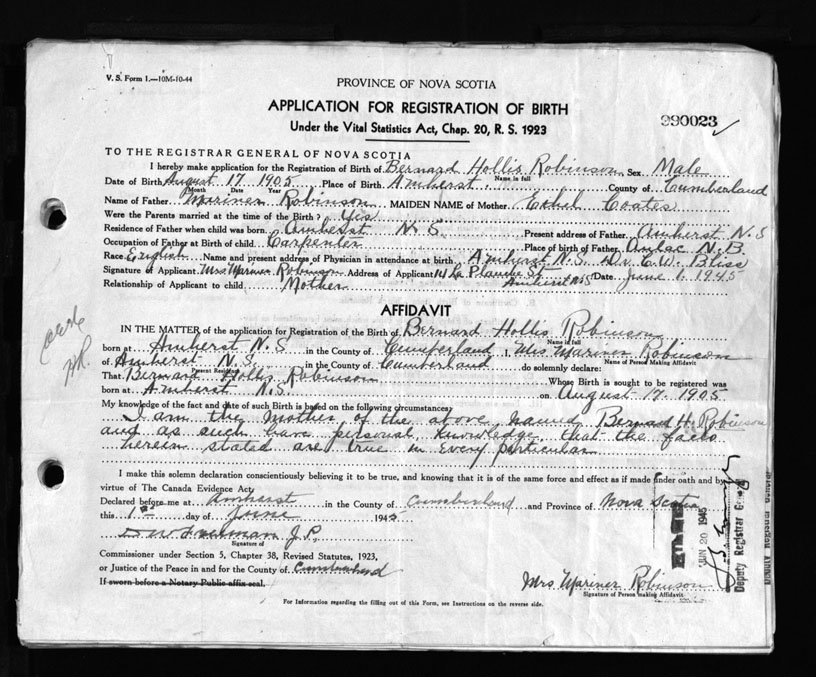 V. S. Form 1.—10M-10-44
PROVINCE OF NOVA SCOTIA
APPLICATION FOR REGISTRATION OF BIRTH
990023
Under the Vital Statistics Act, Chap. 20, R. S. 1923
TO THE REGISTRAR GENERAL OF NOVA SCOTIA
I hereby make application for the Registration of Birth of Bernard Hollis Robinson Sex Male
Name in full
Date of Birth August 17 1905 Place of Birth Amherst County of Cumberland
Month Date Year
Name of Father Mariner Robinson MAIDEN NAME of Mother Ethel Coates
Were the Parents married at the time of the Birth? Yes
Residence of Father when child was born Amherst N S Present address of Father Amherst N.S
Occupation of Father at Birth of child Carpenter Place of birth of Father Aulac N.B.
Race English Name and present address of Physician in attendance at birth Amherst N.S. Dr. C. W. Bliss
Signature of Applicant Mrs Mariner Robinson Address of Applicant 14 La Planche St Amherst N S Date June 1. 1945
Relationship of Applicant to child Mother
AFFIDAVIT
IN THE MATTER of the application for Registration of the Birth of Bernard Hollis Robinson
Name in full
born at Amherst N.S in the County of Cumberland I, Mrs Mariner Robinson
Name of Person Making Affidavit
of Amherst N.S. in the County of Cumberland do solemnly declare:
Present Residence
That Bernard Hollis Robinson Whose Birth is sought to be registered was
born at Amherst N.S. on August 17. 1905
My knowledge of the fact and date of such Birth is based on the following circumstances:
I am the Mother of the above named Bernard H. Robinson
and as such have personal knowledge that the facts
herein stated are true in every particular
I make this solemn declaration conscientiously believing it to be true, and knowing that it is of the same force and effect as if made under oath and by
virtue of The Canada Evidence Act,
Declared before me at Amherst in the County of Cumberland and Province of Nova Scotia
this 1st day of June 1945
J.P.
Signature of
Commissioner under Section 5, Chapter 38, Revised Statutes, 1923,
or Justice of the Peace in and for the County of Cumberland
If sworn before a Notary Public affix seal.
Mrs Mariner Robinson
Signature of Person making Affidavit.
For Information regarding the filling out of this Form, see Instructions on the reverse side.
JUN 20 1945
Deputy Registrar General
Deputy Registrar General